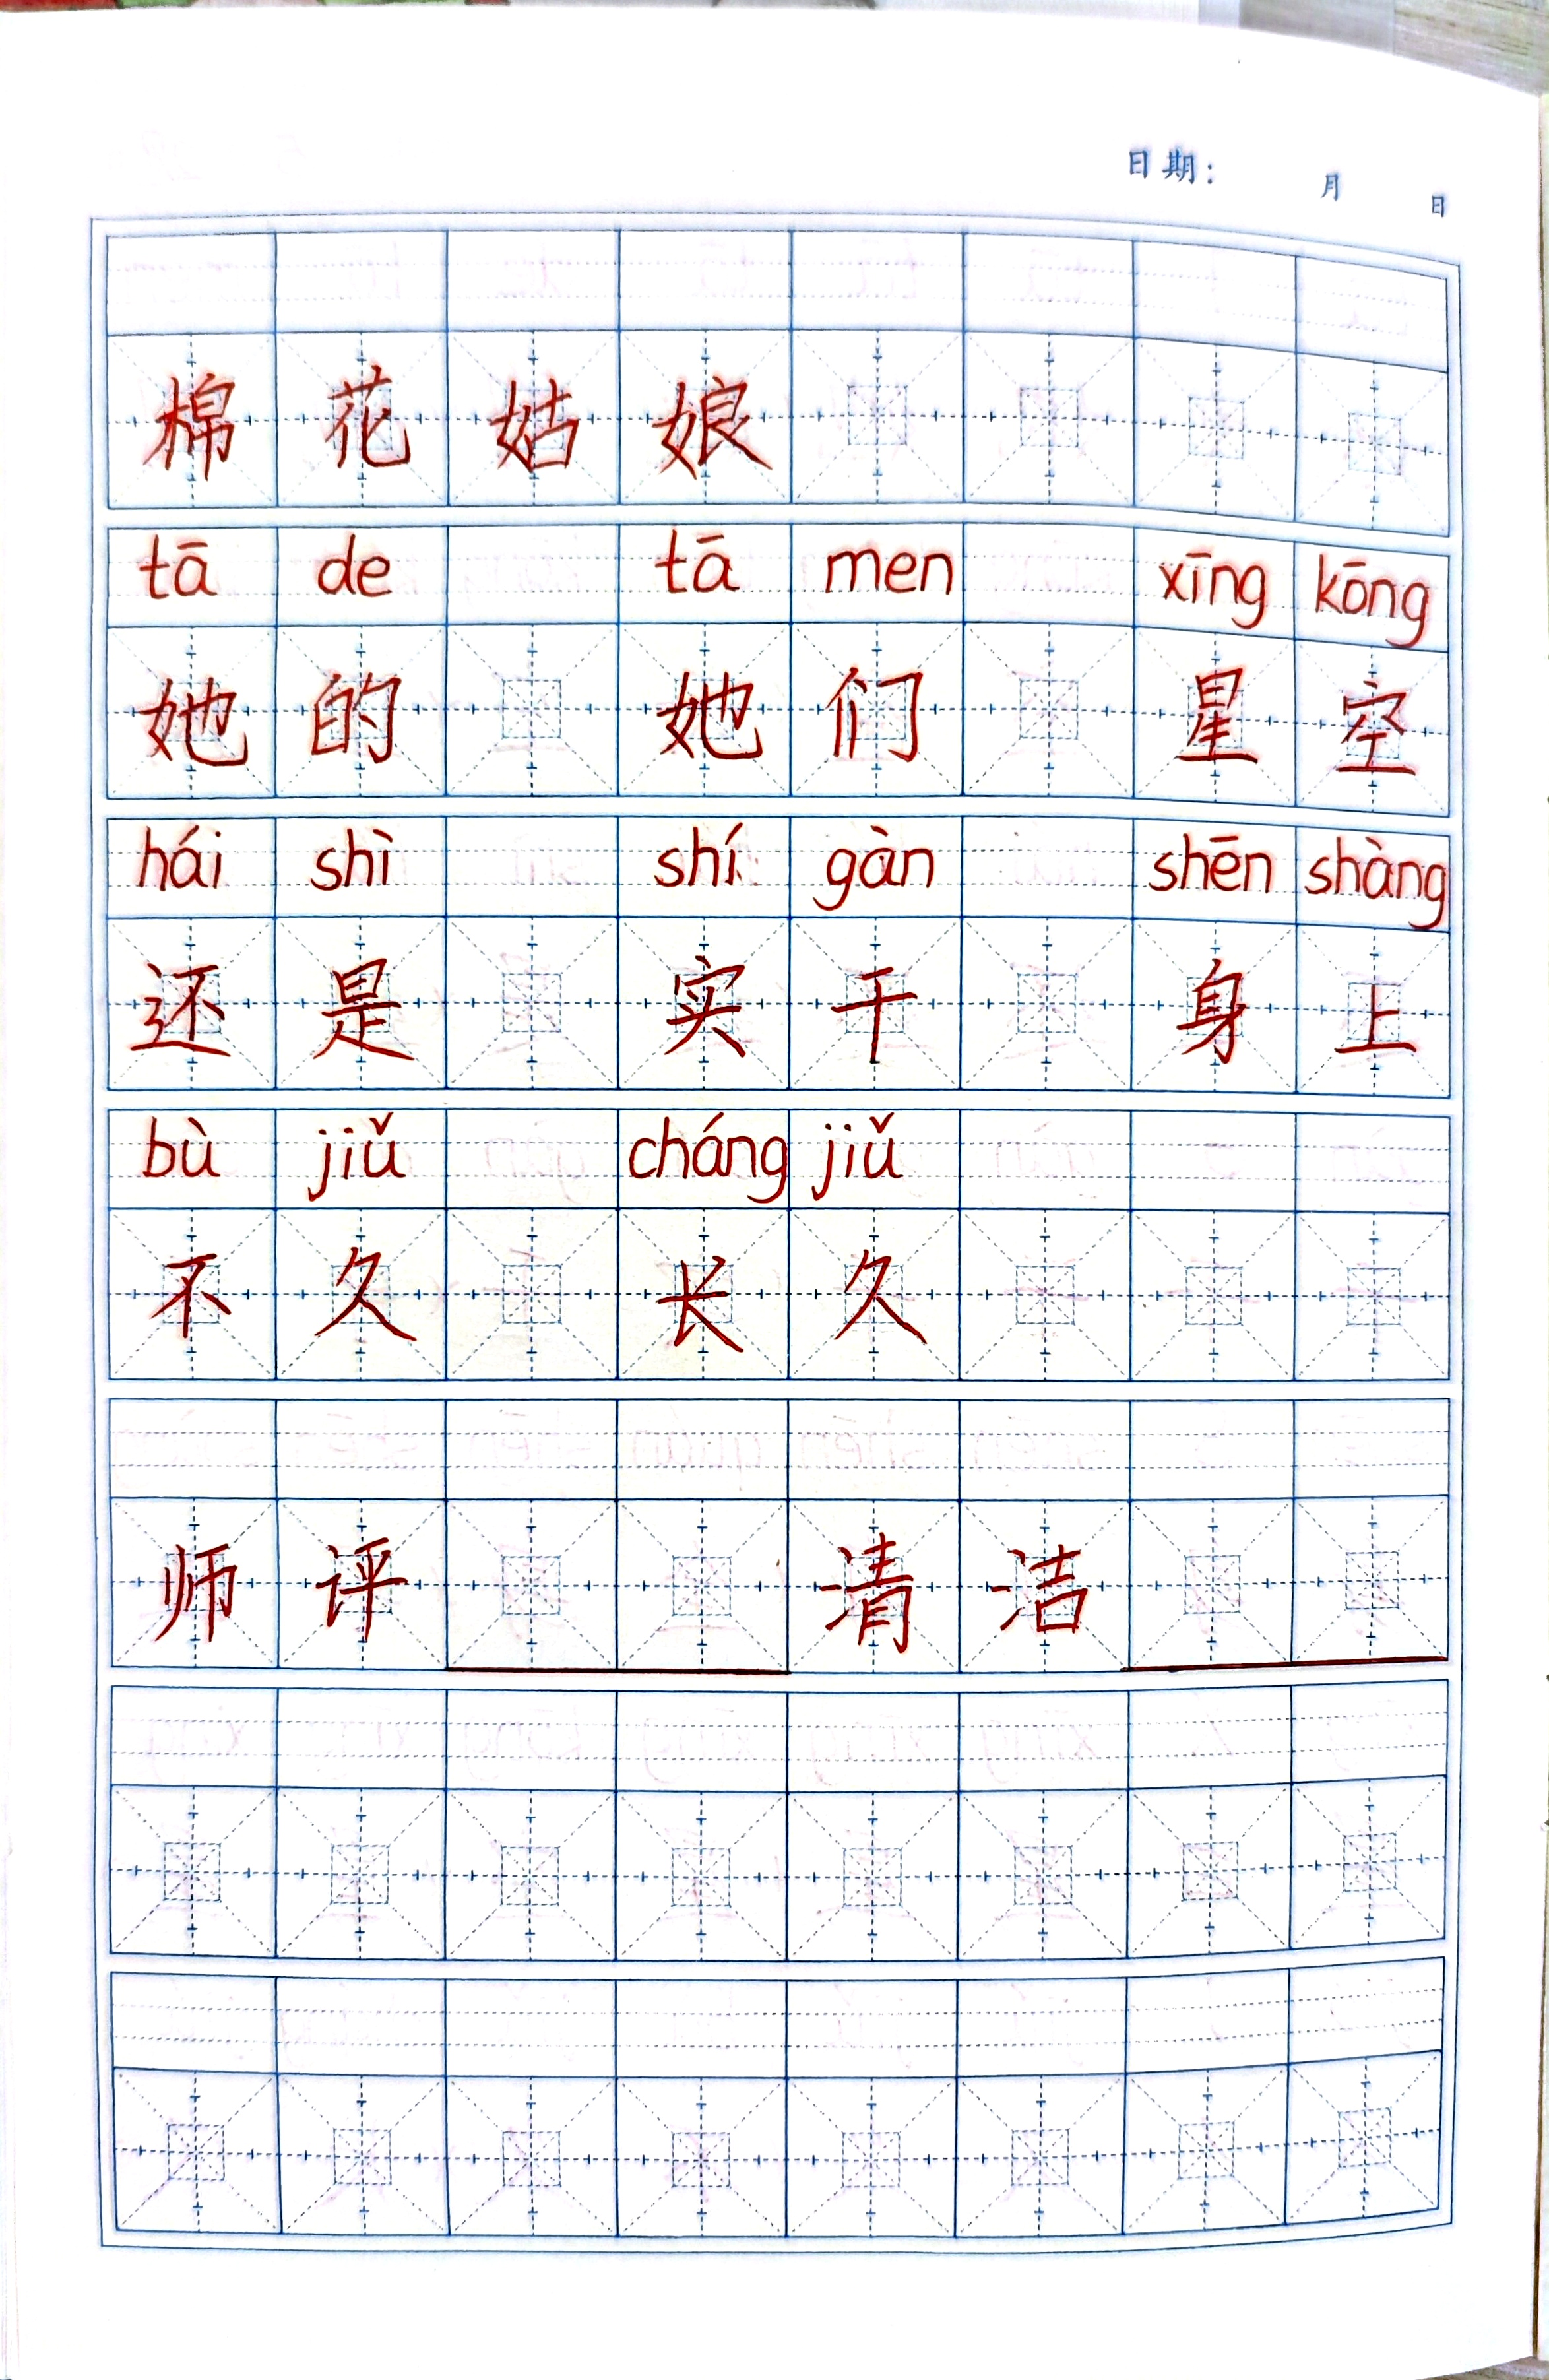 日期: 月 日
棉花姑娘
tā de tā men xīng kōng
她的 她们 星空
hái shì shí gàn shēn shàng
还是 实干 身上
bù jiǔ cháng jiǔ
不久 长久
师评 清洁